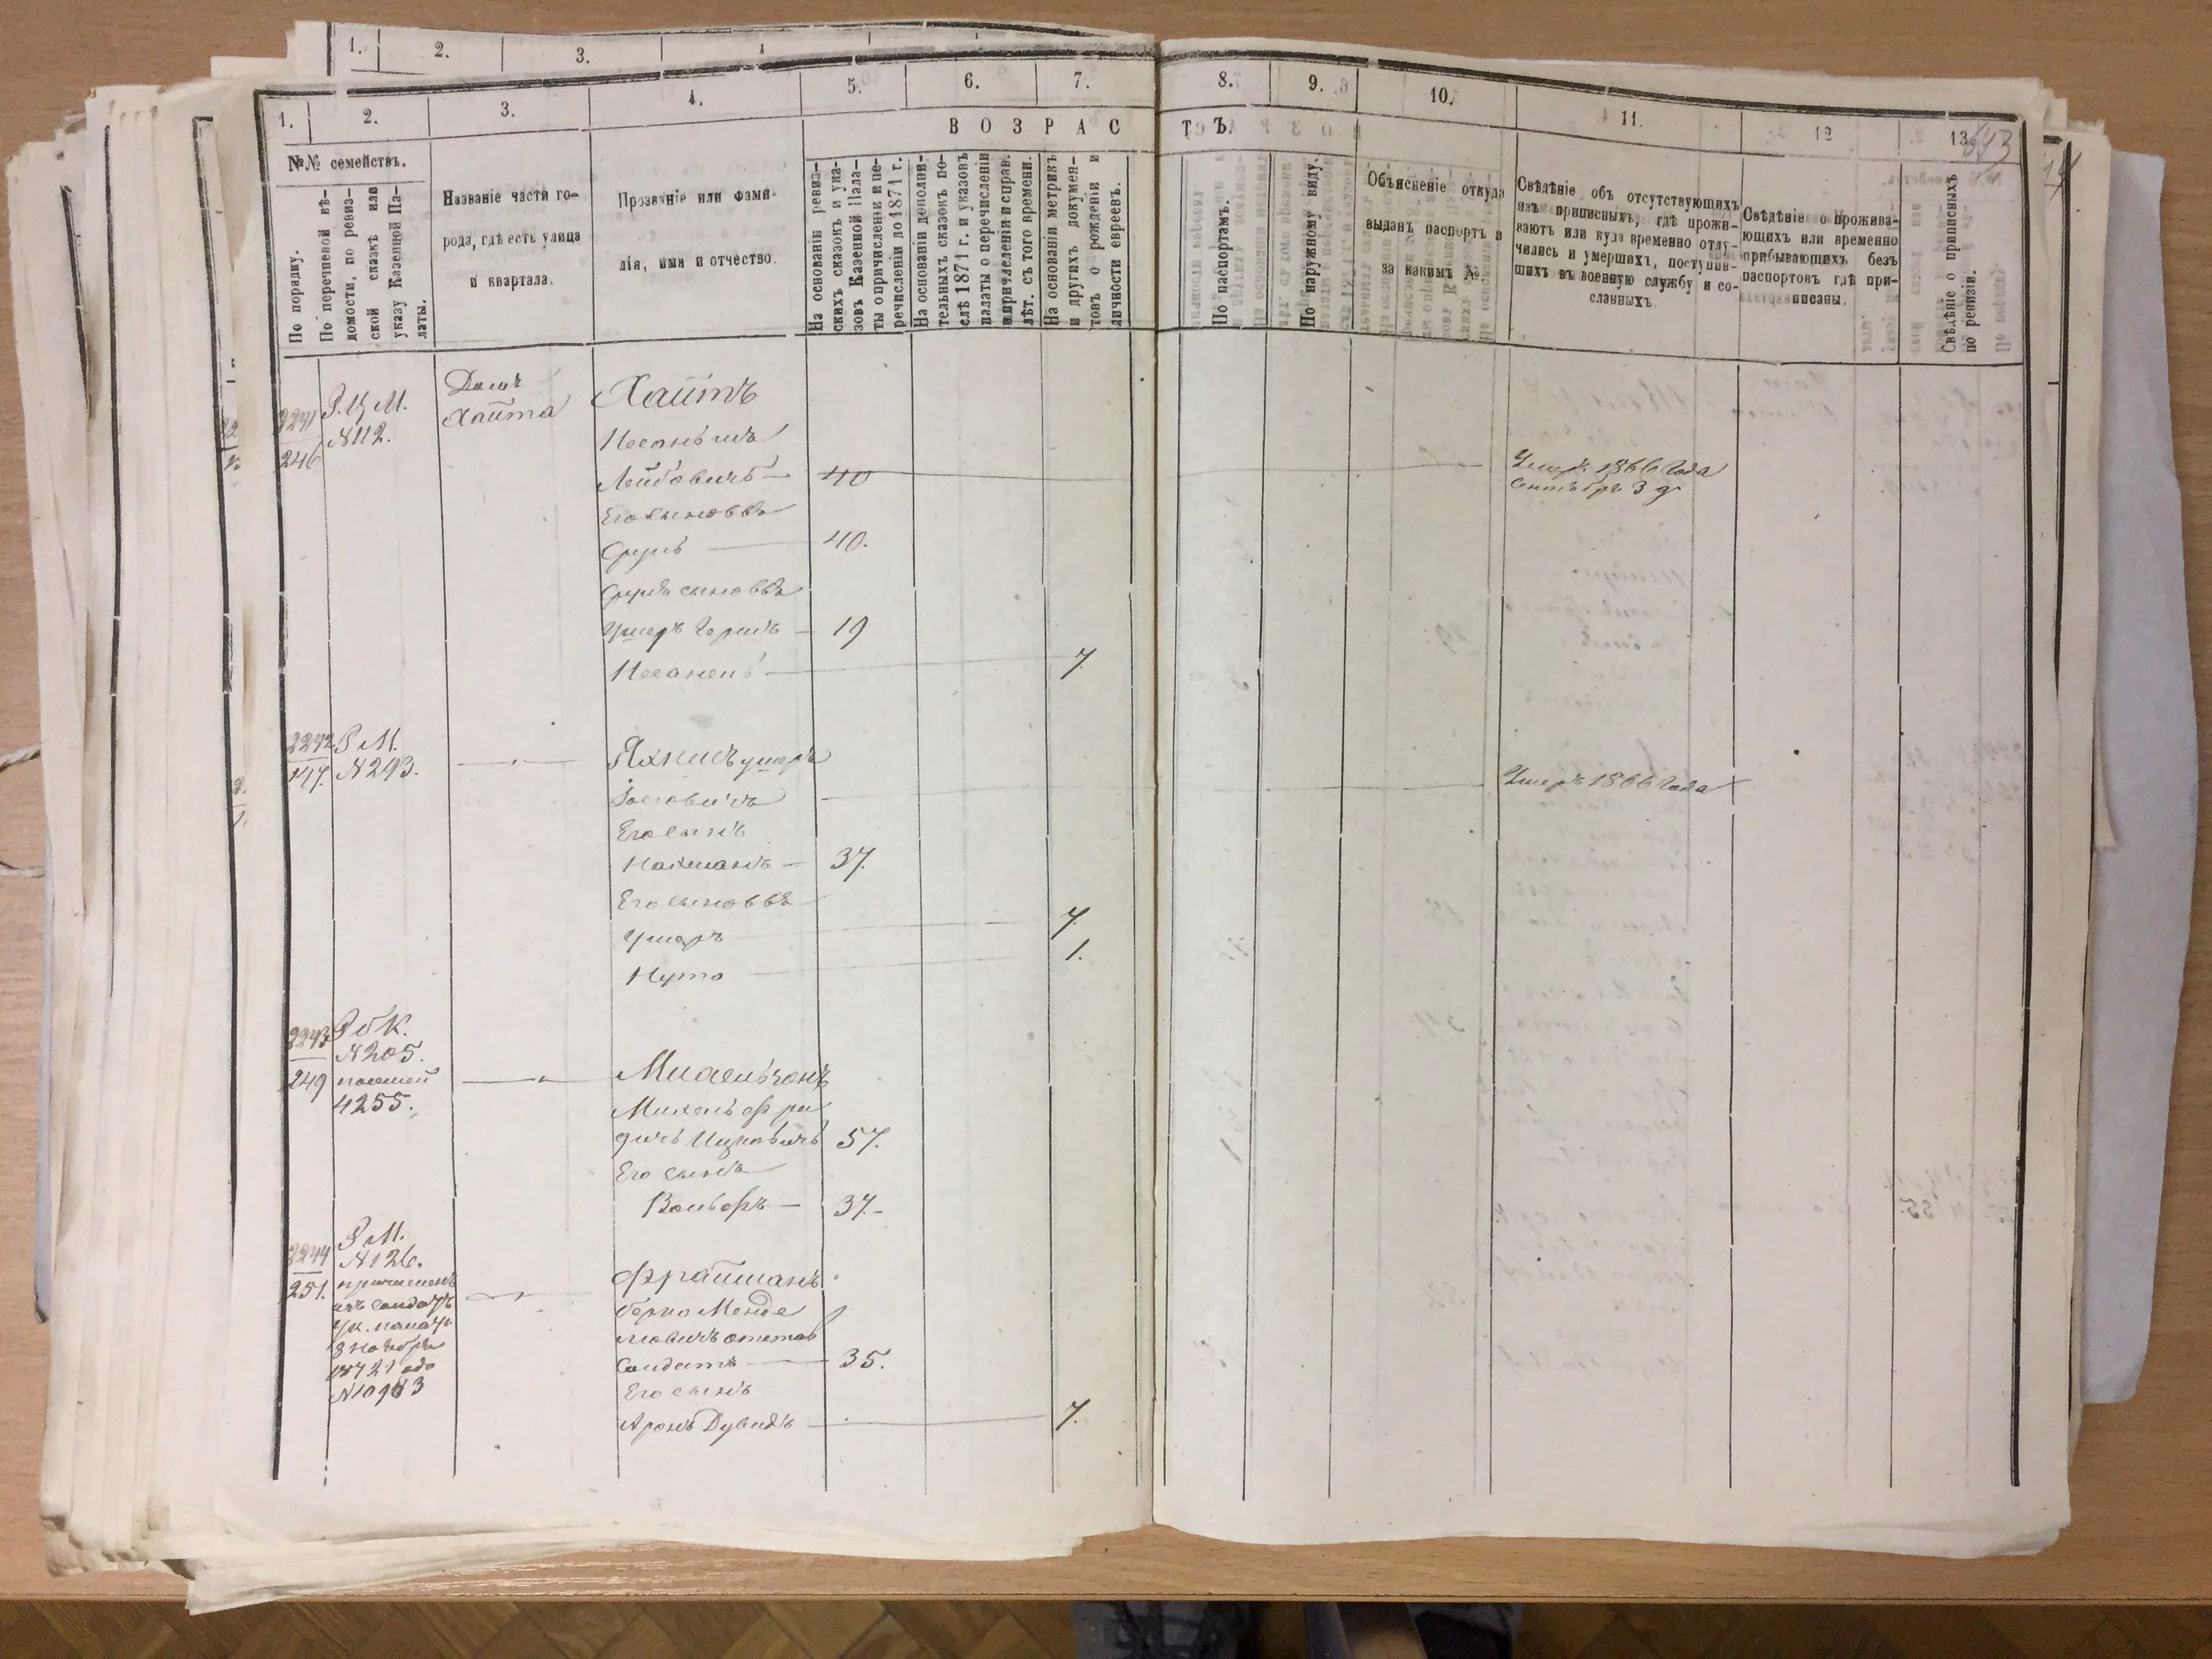 1. 2. 3. 4
1. 2. 3. 4. 5. 6. 7. 8. 9. 10. 11. 12 13.
543
В О З Р А С Т Ъ.
№№ семействъ.
По порядку.
По перечневой вѣ-
домости, по ревиз-
ской сказкѣ или
указу Казенной Па-
латы.
Названіе части го-
рода, гдѣ есть улица
и квартала.
Прозваніе или фами-
лія, имя и отчество.
На основаніи ревиз-
скихъ сказокъ и ука-
зовъ Казенной Пала-
ты о причисленіи и пе-
речисленіи до 1871 г.
На основаніи дополни-
тельныхъ сказокъ по-
слѣ 1871 г. и указовъ
палаты о перечисленіи
и причисленіи и справ.
лѣт. съ того времени.
На основаніи метрикъ
и другихъ докумен-
товъ о рожденіи и
личности евреевъ.
По паспортамъ.
По наружному виду.
Объясненіе откуда
выданъ паспортъ и
за какимъ №.
Свѣдѣніе объ отсутствующихъ
изъ приписныхъ, гдѣ прожи-
ваютъ или куда временно отлу-
чились и умершихъ, поступив-
шихъ въ военную службу и со-
сланныхъ
Свѣдѣніе о прожива-
ющихъ или временно
прибывающихъ безъ
паспортовъ гдѣ при-
писаны.
Свѣдѣніе о приписныхъ
по ревизіи.
2241
246
Р. Ц М.
№112.
Домъ
Хайта
Хайтъ
Лейбовичъ — 40
Умеръ 1866 Года
Сентябрь 3 д
Его сыновья
Сруль — 40.
Сруля сыновья
Умеръ Гершъ — 19
7
2242
247.
Р М.
№293.
Яхнисъ умеръ
Іосіовичъ
Умеръ 1866 Года
Его сынъ
Нахманъ — 37.
Его сыновья
Ушеръ 7.
Нута 1.
2243
249
Р б К.
№205.
4255.
Цуковичъ 57.
Его сынъ
Вольфъ — 37.
2244
251.
Р М.
№126.
причисленъ
изъ солдатъ
Ук. палаты
8 Ноября
1872 Года
Фрайманъ
Берко Менде
левичъ отстав
Солдатъ — 35.
Его сынъ
Аронъ Дувидъ 7.